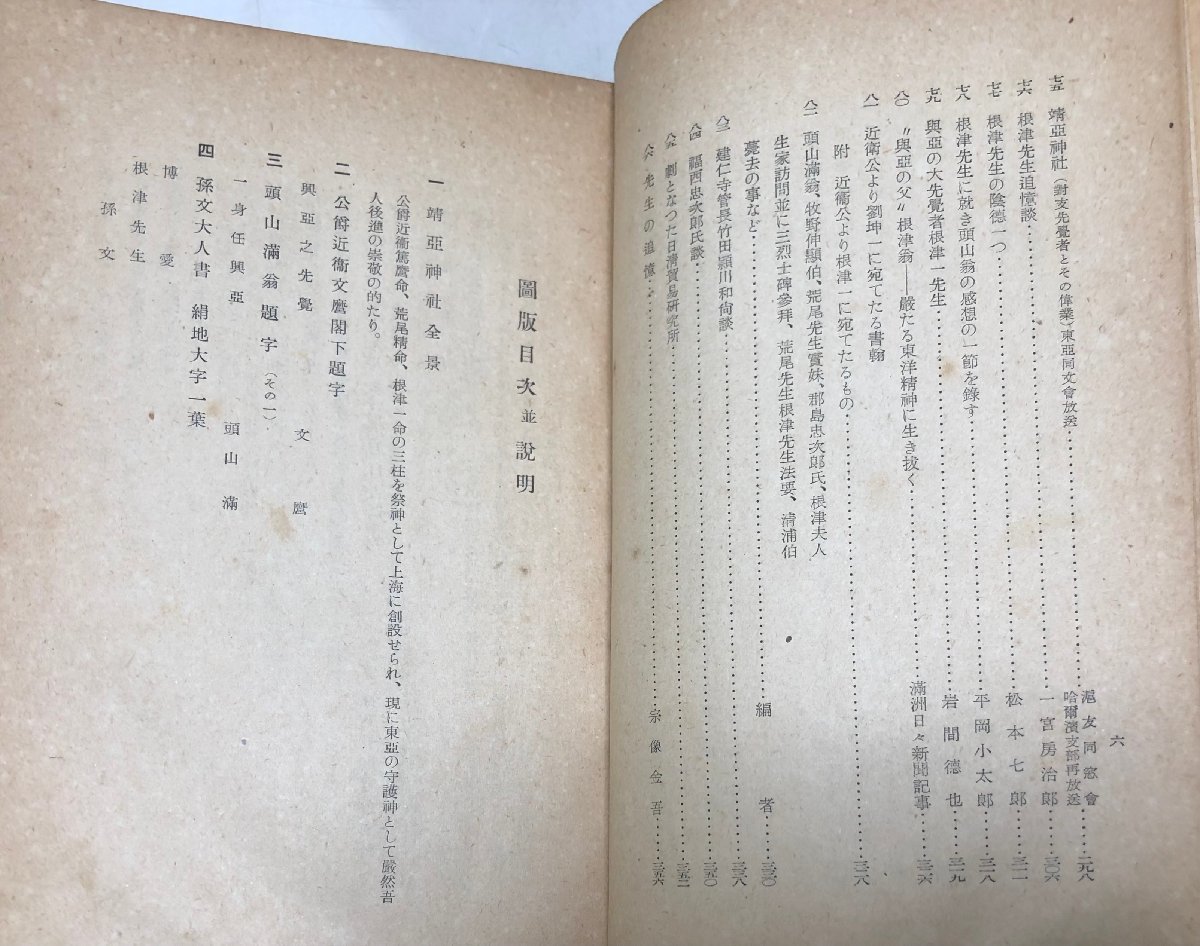 六
七五 靖亞神社(對支先覺者とその偉業)東亞同文會放送 滬友同窓會哈爾濱支部再放送 二九八
七六 根津先生追憶談 一宮房治郎 三〇六
七七 根津先生の陰德一つ 松本七郎 三一一
七八 根津先生に就き頭山翁の感想の一節を錄す 平岡小太郎 三一八
七九 興亞の大先覺者根津一先生 岩間德也 三一九
八〇 〃興亞の父〃根津翁——嚴たる東洋精神に生き拔く 滿洲日々新聞記事 三二六
八一 近衞公より劉坤一に宛てたる書翰
附 近衞公より根津一に宛てたるもの 三二八
八二 頭山滿翁、牧野伸顯伯、荒尾先生實妹、郡島忠次郎氏、根津夫人
生家訪問並に三烈士碑參拜、荒尾先生根津先生法要、淸浦伯
薨去の事など 編者 三三〇
八三 建仁寺管長竹田頴川和尙談 三三八
八四 福西忠次郎氏談 三五〇
八五 劇となつた日淸貿易硏究所 三五二
八六 先生の追憶 宗像金吾 三五六
圖版目次並說明
一 靖亞神社全景
公爵近衞篤麿命、荒尾精命、根津一命の三柱を祭神として上海に創設せられ、現に東亞の守護神として嚴然吾
人後進の崇敬の的たり。
二 公爵近衞文麿閣下題字
興亞之先覺 文麿
三 頭山滿翁題字(その一)
一身任興亞 頭山滿
四 孫文大人書 絹地大字一葉
博愛
根津先生
孫文